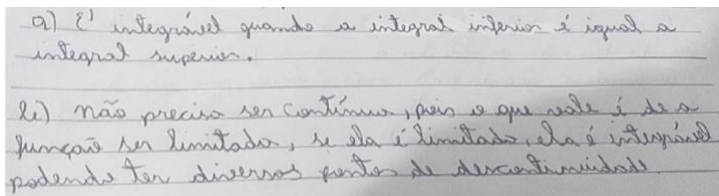 a) É integrável quando a integral inferior é igual a
integral superior.
b) não precisa ser contínua, pois o que vale é se a
função ser limitada, se ela é limitada, ela é integrável
podendo ter diversos pontos de descontinuidade.